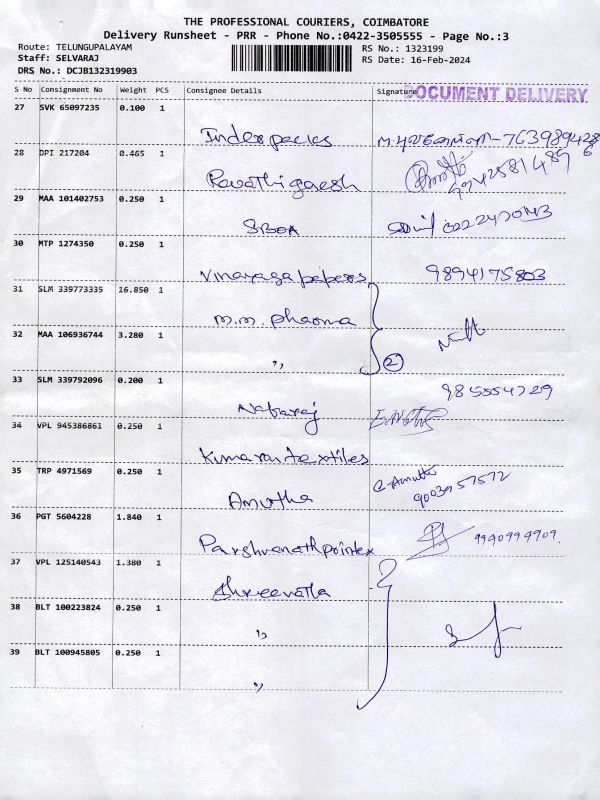 THE PROFESSIONAL COURIERS, COIMBATORE
Delivery Runsheet - PRR - Phone No.:0422-3505555 - Page No.:3
Route: TELUNGUPALAYAM RS No.: 1323199
Staff: SELVARAJ RS Date: 16-Feb-2024
DRS No.: DCJB132319903
S No Consignment No Weight PCS Consignee Details Signature DOCUMENT DELIVERY
27 SVK 65097235 0.100 1
Inderpacks
28 DPI 217204 0.465 1
Revathi ganesh
29 MAA 101402753 0.250 1
SBOA
30 MTP 1274350 0.250 1
Vinayaga papers 9894175803
31 SLM 339773335 16.850 1
M.M. Pharma
32 MAA 106936744 3.280 1
" 2
33 SLM 339792096 0.200 1
Nataraj 985554729
34 VPL 945386861 0.250 1
Kumaran textiles
35 TRP 4971569 0.250 1
Amutha 9003957572
36 PGT 5604228 1.840 1
Parshvanath printex 9940994909.
37 VPL 125140543 1.380 1
38 BLT 100223824 0.250 1
"
39 BLT 100945805 0.250 1
"